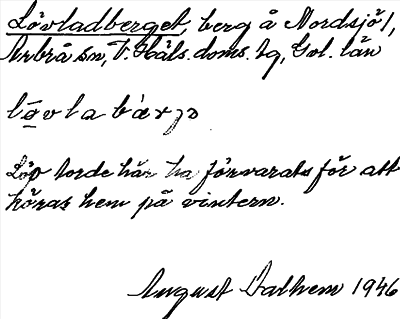 Lövladberget, berg å Nordsjö 1,
Arbrå sn, V. Häls. doms. tg, Gvl. län
lö̱vlabàrjə
Löv torde här ha förvarats för att
köras hem på vintern.
August Dalhem 1946